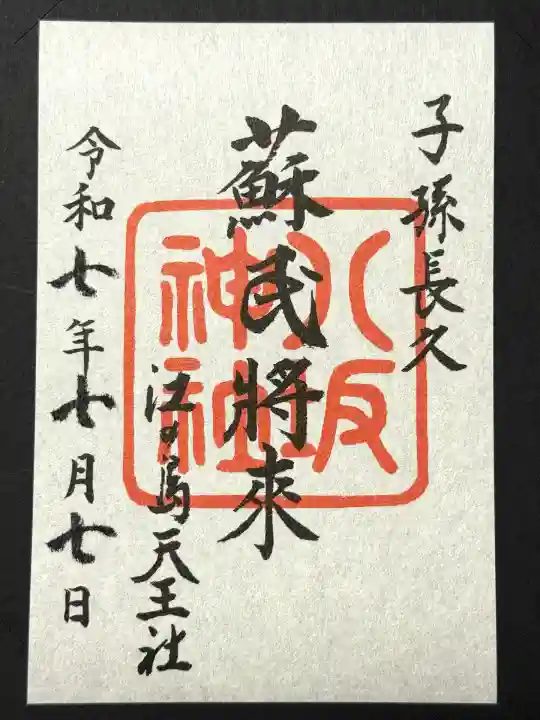 子孫長久
蘇民將來
八坂
神社
江の島天王社
令和七年七月七日